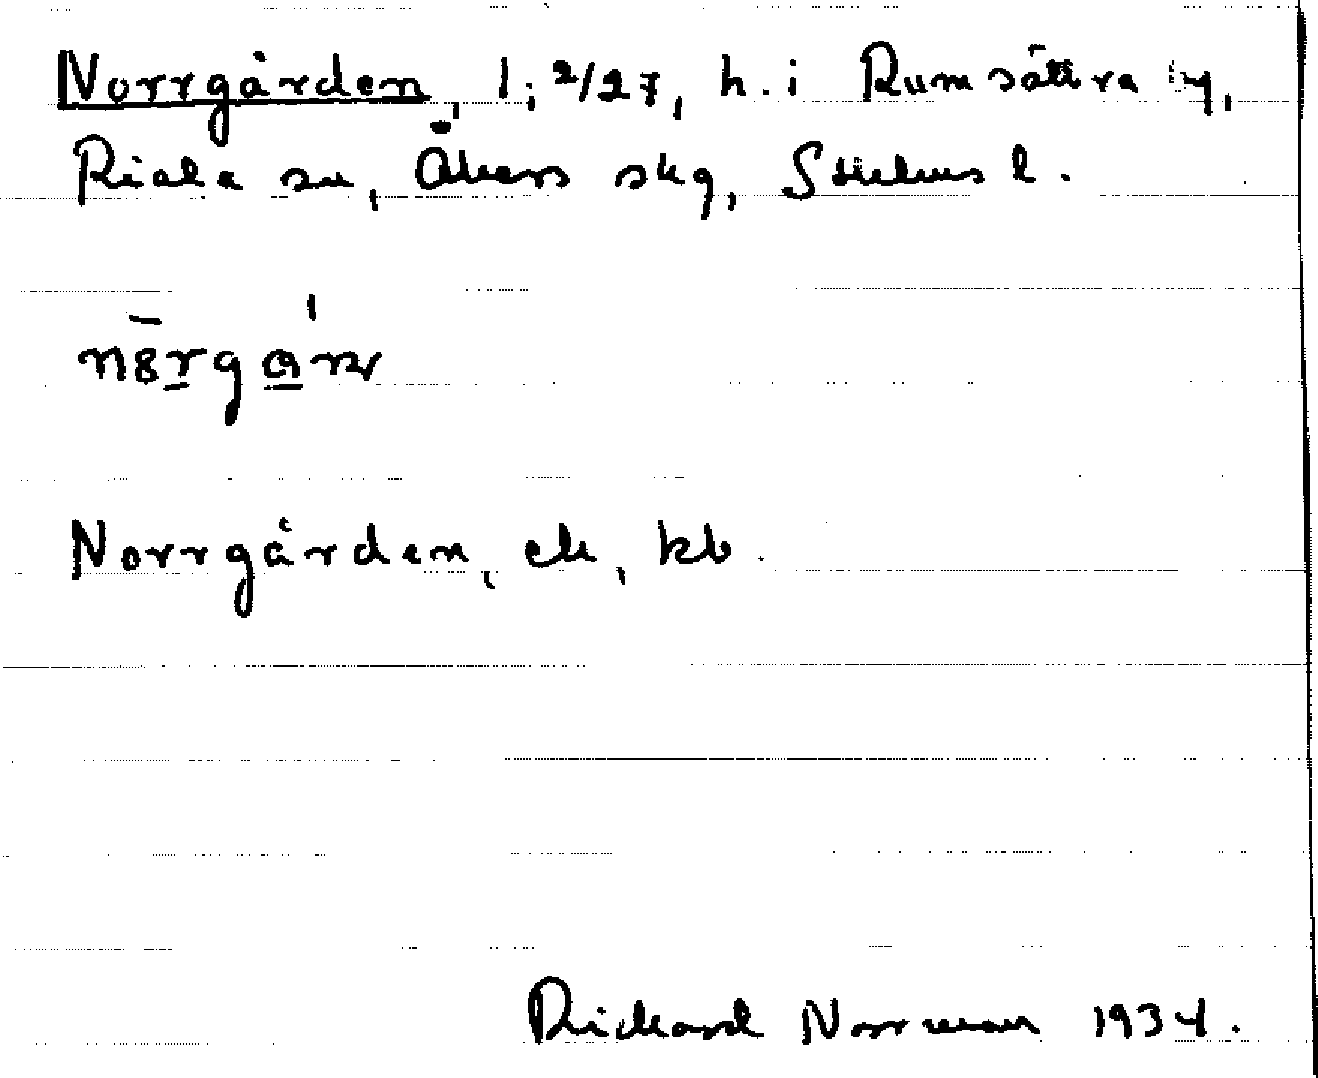 Norrgården, 1; 2/27, h. i Rumsättra by,
Riala sn, Åkers skg, Sthlms l.
Norrgården, ek, kb.
Rickard Norrman 1934.